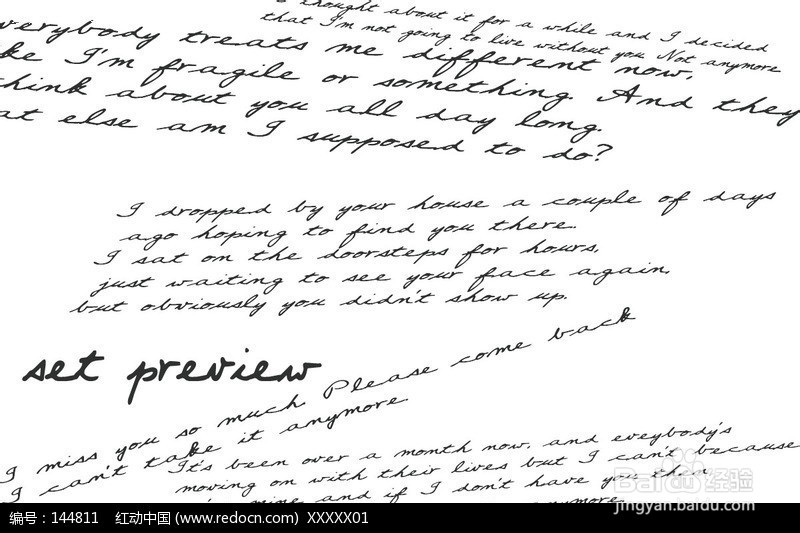 thought about it for a while and I decided
that I'm not going to live without you Not anymore
verybody treats me different now,
ke I'm fragile or something. And they
think about you all day long.
at else am I supposed to do?
I dropped by your house a couple of days
ago hoping to find you there.
I sat on the doorsteps for hours,
just waiting to see your face again,
but obviously you didn't show up.
set preview
I miss you so much. Please come back
I can't take it anymore.
It's been over a month now, and eveybody's
moving on with their lives but I can't because
mine and if I don't have you then
anymore.
Baidu经验
jingyan.baidu.com
编号：144811 红动中国 (www.redocn.com) XXXXX01